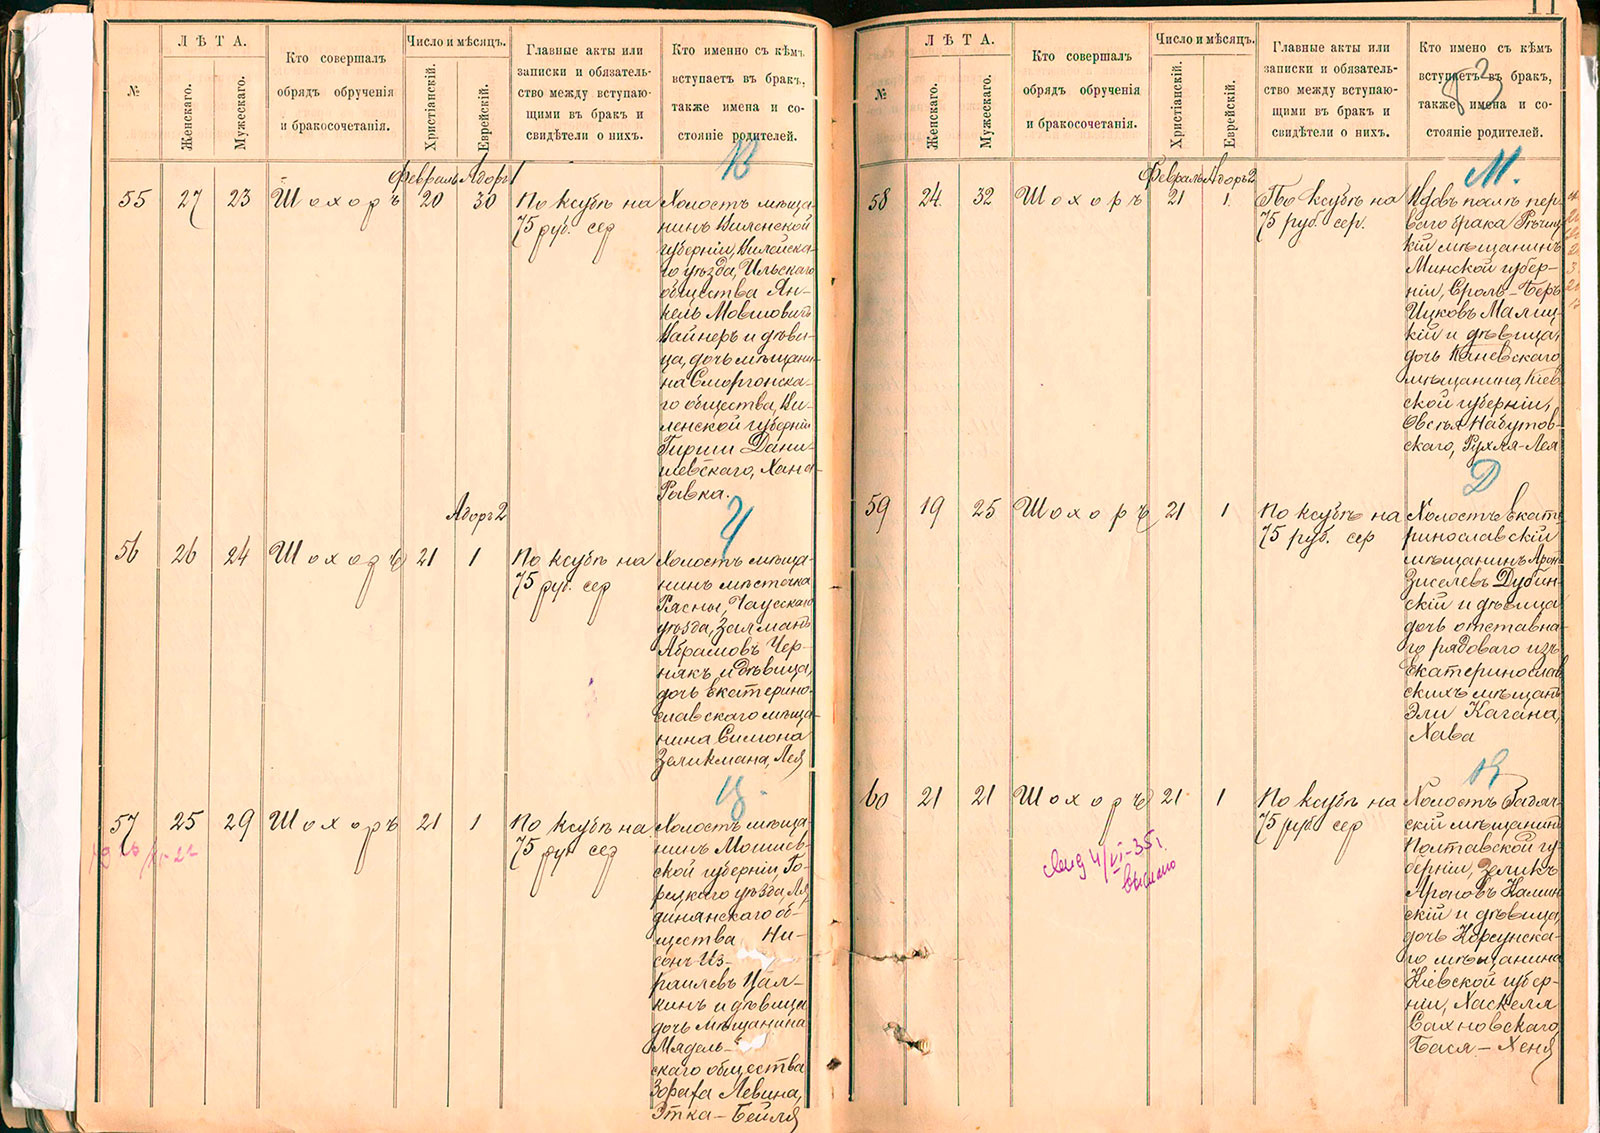 №
ЛѢТА.
Женскаго.
Мужескаго.
Кто совершалъ
обрядъ обрученія
и бракосочетанія.
Число и мѣсяцъ.
Христіанскій.
Еврейскій.
Главные акты или
записки и обязатель-
ство между вступаю-
щими въ бракъ и
свидѣтели о нихъ.
Кто именно съ кѣмъ
вступаетъ въ бракъ,
также имена и со-
стояніе родителей.
Февраль Адоръ 1
55 27 23 Шохоръ 20 30
По ксубѣ на
75 руб. сер
В
Холостъ мѣща-
нинъ Виленской
губерніи, Вилейска-
го уѣзда, Ильскаго
общества Ян-
кель Мовшовичъ
Вайнеръ и дѣви-
ца, дочь мѣщани-
на Сморгонска-
го общества, Ви-
ленской губерніи
Гирши Дани-
шевскаго, Хана
Рывка.
Адоръ 2
56 26 24 Шохоръ 21 1
По ксубѣ на
75 руб. сер
Ч
Холостъ мѣща-
нинъ мѣстечка
Рясны, Чаусскаго
уѣзда, Залманъ
Абрамовъ Чер-
някъ и дѣвица,
дочь Екатерино-
славскаго мѣща-
нина Симона
Зеликмана, Лея
57 25 29 Шохоръ 21 1
По ксубѣ на
75 руб сер
Ц
Холостъ мѣща-
нинъ Могилев-
ской губерніи, Го-
рецкаго уѣзда, Ля-
динянскаго об-
щества Ни-
сонъ Из-
раилевъ Цал-
кинъ и дѣвица
дочь мѣщанина
Мядель-
скаго общества
Зораха Левина,
Этка-Бейля
11
53
№
ЛѢТА.
Женскаго.
Мужескаго.
Кто совершалъ
обрядъ обрученія
и бракосочетанія.
Число и мѣсяцъ.
Христіанскій.
Еврейскій.
Главные акты или
записки и обязатель-
ство между вступаю-
щими въ бракъ и
свидѣтели о нихъ.
Кто имено съ кѣмъ
вступаетъ въ бракъ,
также имена и со-
стояніе родителей.
Февраль Адоръ 2
58 24 32 Шохоръ 21 1
По ксубѣ на
75 руб. сер.
М.
Вдовъ послѣ пер-
ваго брака Рѣчиц-
кій мѣщанинъ
Минской губер-
ніи, Сроль-Беръ
Ицковъ Малиц-
кій и дѣвица,
дочь Каневскаго
мѣщанина, Кіев-
ской губерніи,
Овсѣя Набутов-
скаго, Рухля-Лея
59 19 25 Шохоръ 21 1
По ксубѣ на
75 руб. сер
Д
Холостъ Екате-
ринославскій
мѣщанинъ Аронъ
Зиселевъ Дубин-
скій и дѣвица
дочь отставна-
го рядоваго изъ
Екатеринослав
скихъ мѣщанъ
Эли Кагана,
Хава
60 21 21 Шохоръ 21 1
По ксубѣ на
75 руб сер
К
Холостъ Гадяч-
скій мѣщанинъ
Полтавской гу-
берніи, Зеликъ
Ароновъ Камин
скій и дѣвица
дочь Корсунска-
го мѣщанина
Кіевской губер-
ніи, Хаскеля
Сахновскаго,
Бася-Хеня
4/VI-35г.
выдано